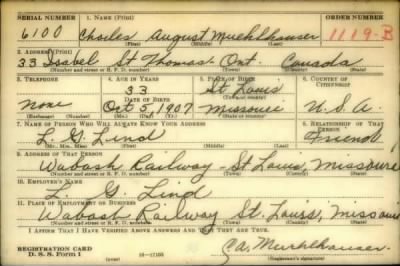 SERIAL NUMBER 1. NAME (Print) ORDER NUMBER
6100 Charles August Muehlhauser 1119-B
(First) (Middle) (Last)
2. ADDRESS (Print)
33 Isabel St Thomas Ont. Canada
(Number and street or R. F. D. number) (Town) (County) (State)
3. TELEPHONE 4. AGE IN YEARS 5. PLACE OF BIRTH 6. COUNTRY OF CITIZENSHIP
33 St Louis
None DATE OF BIRTH Missouri U.S.A.
Oct 5 1907
(Exchange) (Number) (Mo.) (Day) (Yr.) (State or country)
7. NAME OF PERSON WHO WILL ALWAYS KNOW YOUR ADDRESS 8. RELATIONSHIP OF THAT PERSON
L. G. Lind Friend
(Mr., Mrs., Miss) (First) (Middle) (Last)
9. ADDRESS OF THAT PERSON
Wabash Railway - St Louis, Missouri
(Number and street or R. F. D. number) (Town) (County) (State)
10. EMPLOYER'S NAME
L. G. Lind
11. PLACE OF EMPLOYMENT OR BUSINESS
Wabash Railway St. Louis, Missouri
(Number and street or R. F. D. number) (Town) (County) (State)
I AFFIRM THAT I HAVE VERIFIED ABOVE ANSWERS AND THAT THEY ARE TRUE.
REGISTRATION CARD
D. S. S. Form 1 16—17105 C.A. Muehlhauser
(Registrant's signature)